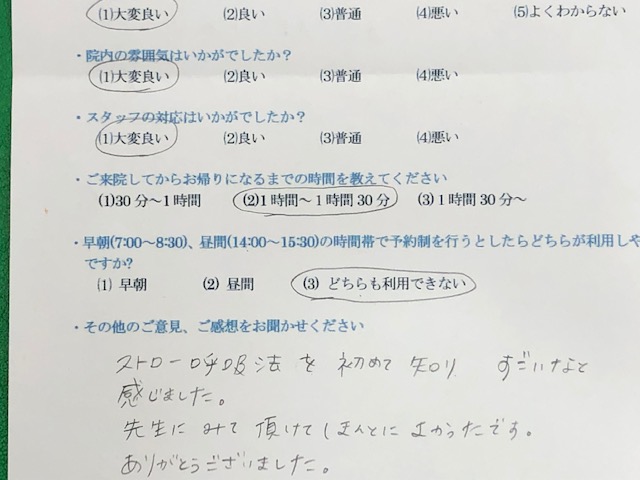 (1)大変良い (2)良い (3)普通 (4)悪い (5)よくわからない
・院内の雰囲気はいかがでしたか?
(1)大変良い (2)良い (3)普通 (4)悪い
・スタッフの対応はいかがでしたか?
(1)大変良い (2)良い (3)普通 (4)悪い
・ご来院してからお帰りになるまでの時間を教えてください
(1)30分~1時間 (2)1時間~1時間30分 (3)1時間30分~
・早朝(7:00~8:30)、昼間(14:00~15:30)の時間帯で予約制を行うとしたらどちらが利用しや
ですか?
(1) 早朝 (2) 昼間 (3) どちらも利用できない
・その他のご意見、ご感想をお聞かせください
ストロー呼吸法を初めて知り すごいなと
感じました。
先生にみて頂けてほんとによかったです。
ありがとうございました。